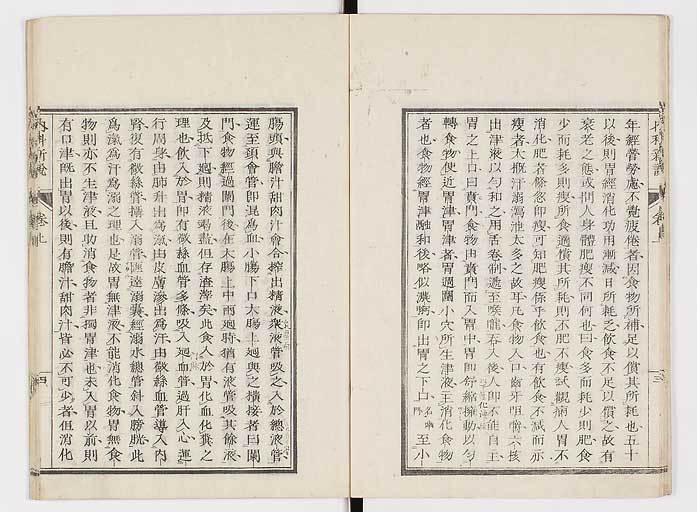 年經營勞慮不覺疲倦者因食物所補足以償其所耗也五十
以後則胃經消化功用漸減日所耗之飲食不足以償之故有
衰老之態或問人身體肥瘦不同何也曰食多而耗少則肥食
少而耗多則瘦所食適償其所耗則不肥不瘦試觀病人胃不
消化肥者條忽即瘦可知肥瘦係乎飲食也有飲食不減而亦
瘦者大概汗溺瀉泄太多之故耳凡食物入口齒牙咀嚼六核
出津液以勻和之用舌卷制遞至喉嚨吞入後人即不能自主
胃之上口曰賁門食物由賁門而入胃中胃即舒縮擁動以勻
轉食物使近胃津胃津者胃週圍小穴所生津液主消化食物
者也食物經胃津融和後略似濃粥即出胃之下口 名幽門 至小
腸頭與膽汁甜肉汁會合搾出精液衆液管吸之入於總液管
運至頸會管即混爲血小腸下口大腸上𢌞與之橫接者曰闌
門食物經過闌門後在大腸上中兩𢌞時猶有液管吸其餘液
及抵下𢌞則精液竭盡但存渣滓矣此食入於胃化血化糞之
理也飲入於胃即有微絲血管多條吸入𢌞血管過肝入心運
行周身由肺升出爲氣由皮膚滲出爲汗由微絲血管導入內
腎復有微絲管擣入溺管匯達溺囊經溺水總管斜入膀胱此
爲氣爲汗爲溺之理也是故胃無津液不能消化食物胃無食
物則亦不生津液且助消食物者非獨胃津也未入胃以前則
有口津既出胃以後則有膽汁甜肉汁皆必不可少者但消化
內科新說 卷上 三
內科新說 卷上 四